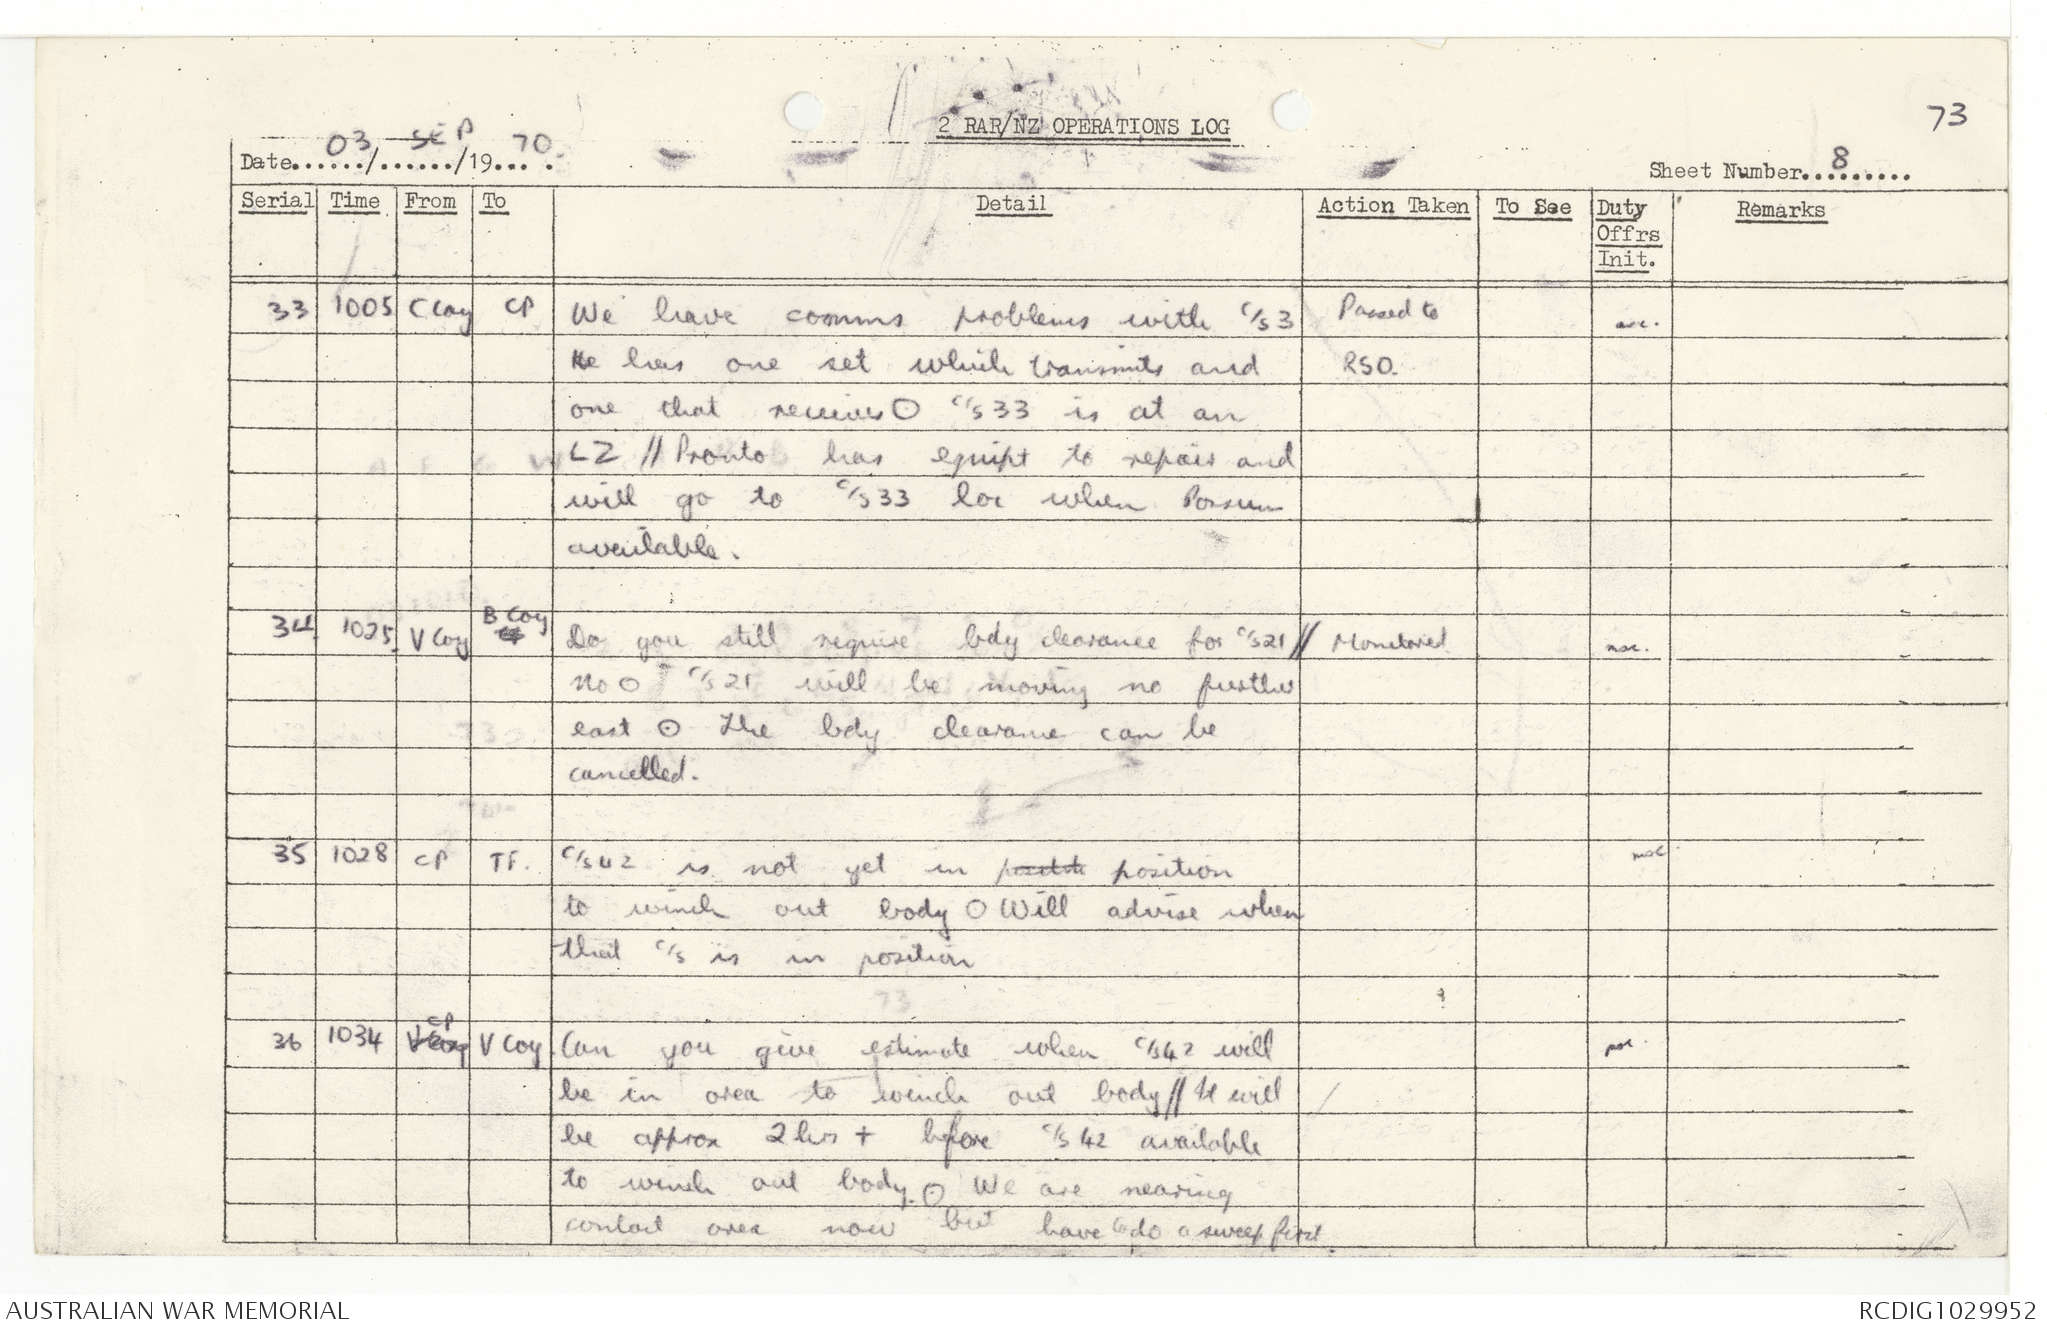 73
2 RAR/NZ OPERATIONS LOG
Date 03/SEP/1970.
Sheet Number 8
Serial Time From To Detail Action Taken To See Duty Offrs Init. Remarks
33 1005 C Coy CP We have comms problems with C/S 3 Passed to
He has one set which transmits and RSO.
one that receives O C/S 33 is at an
LZ // Pronto has equipt to repair and
will go to C/S 33 loc when Possum
available.
34 1025 V Coy B Coy Do you still require bdy clearance for C/S 21 // Monitored
No O C/S 21 will be moving no further
east O The bdy clearance can be
cancelled.
35 1028 CP TF. C/S 42 is not yet in position
to winch out body O Will advise when
that C/S is in position
36 1034 V Coy CP V Coy Can you give estimate when C/S 42 will
be in area to winch out body // It will
be approx 2 hrs + before C/S 42 available
to winch out body. O We are nearing
contact area now but have to do a sweep first.
AUSTRALIAN WAR MEMORIAL
RCDIG1029952